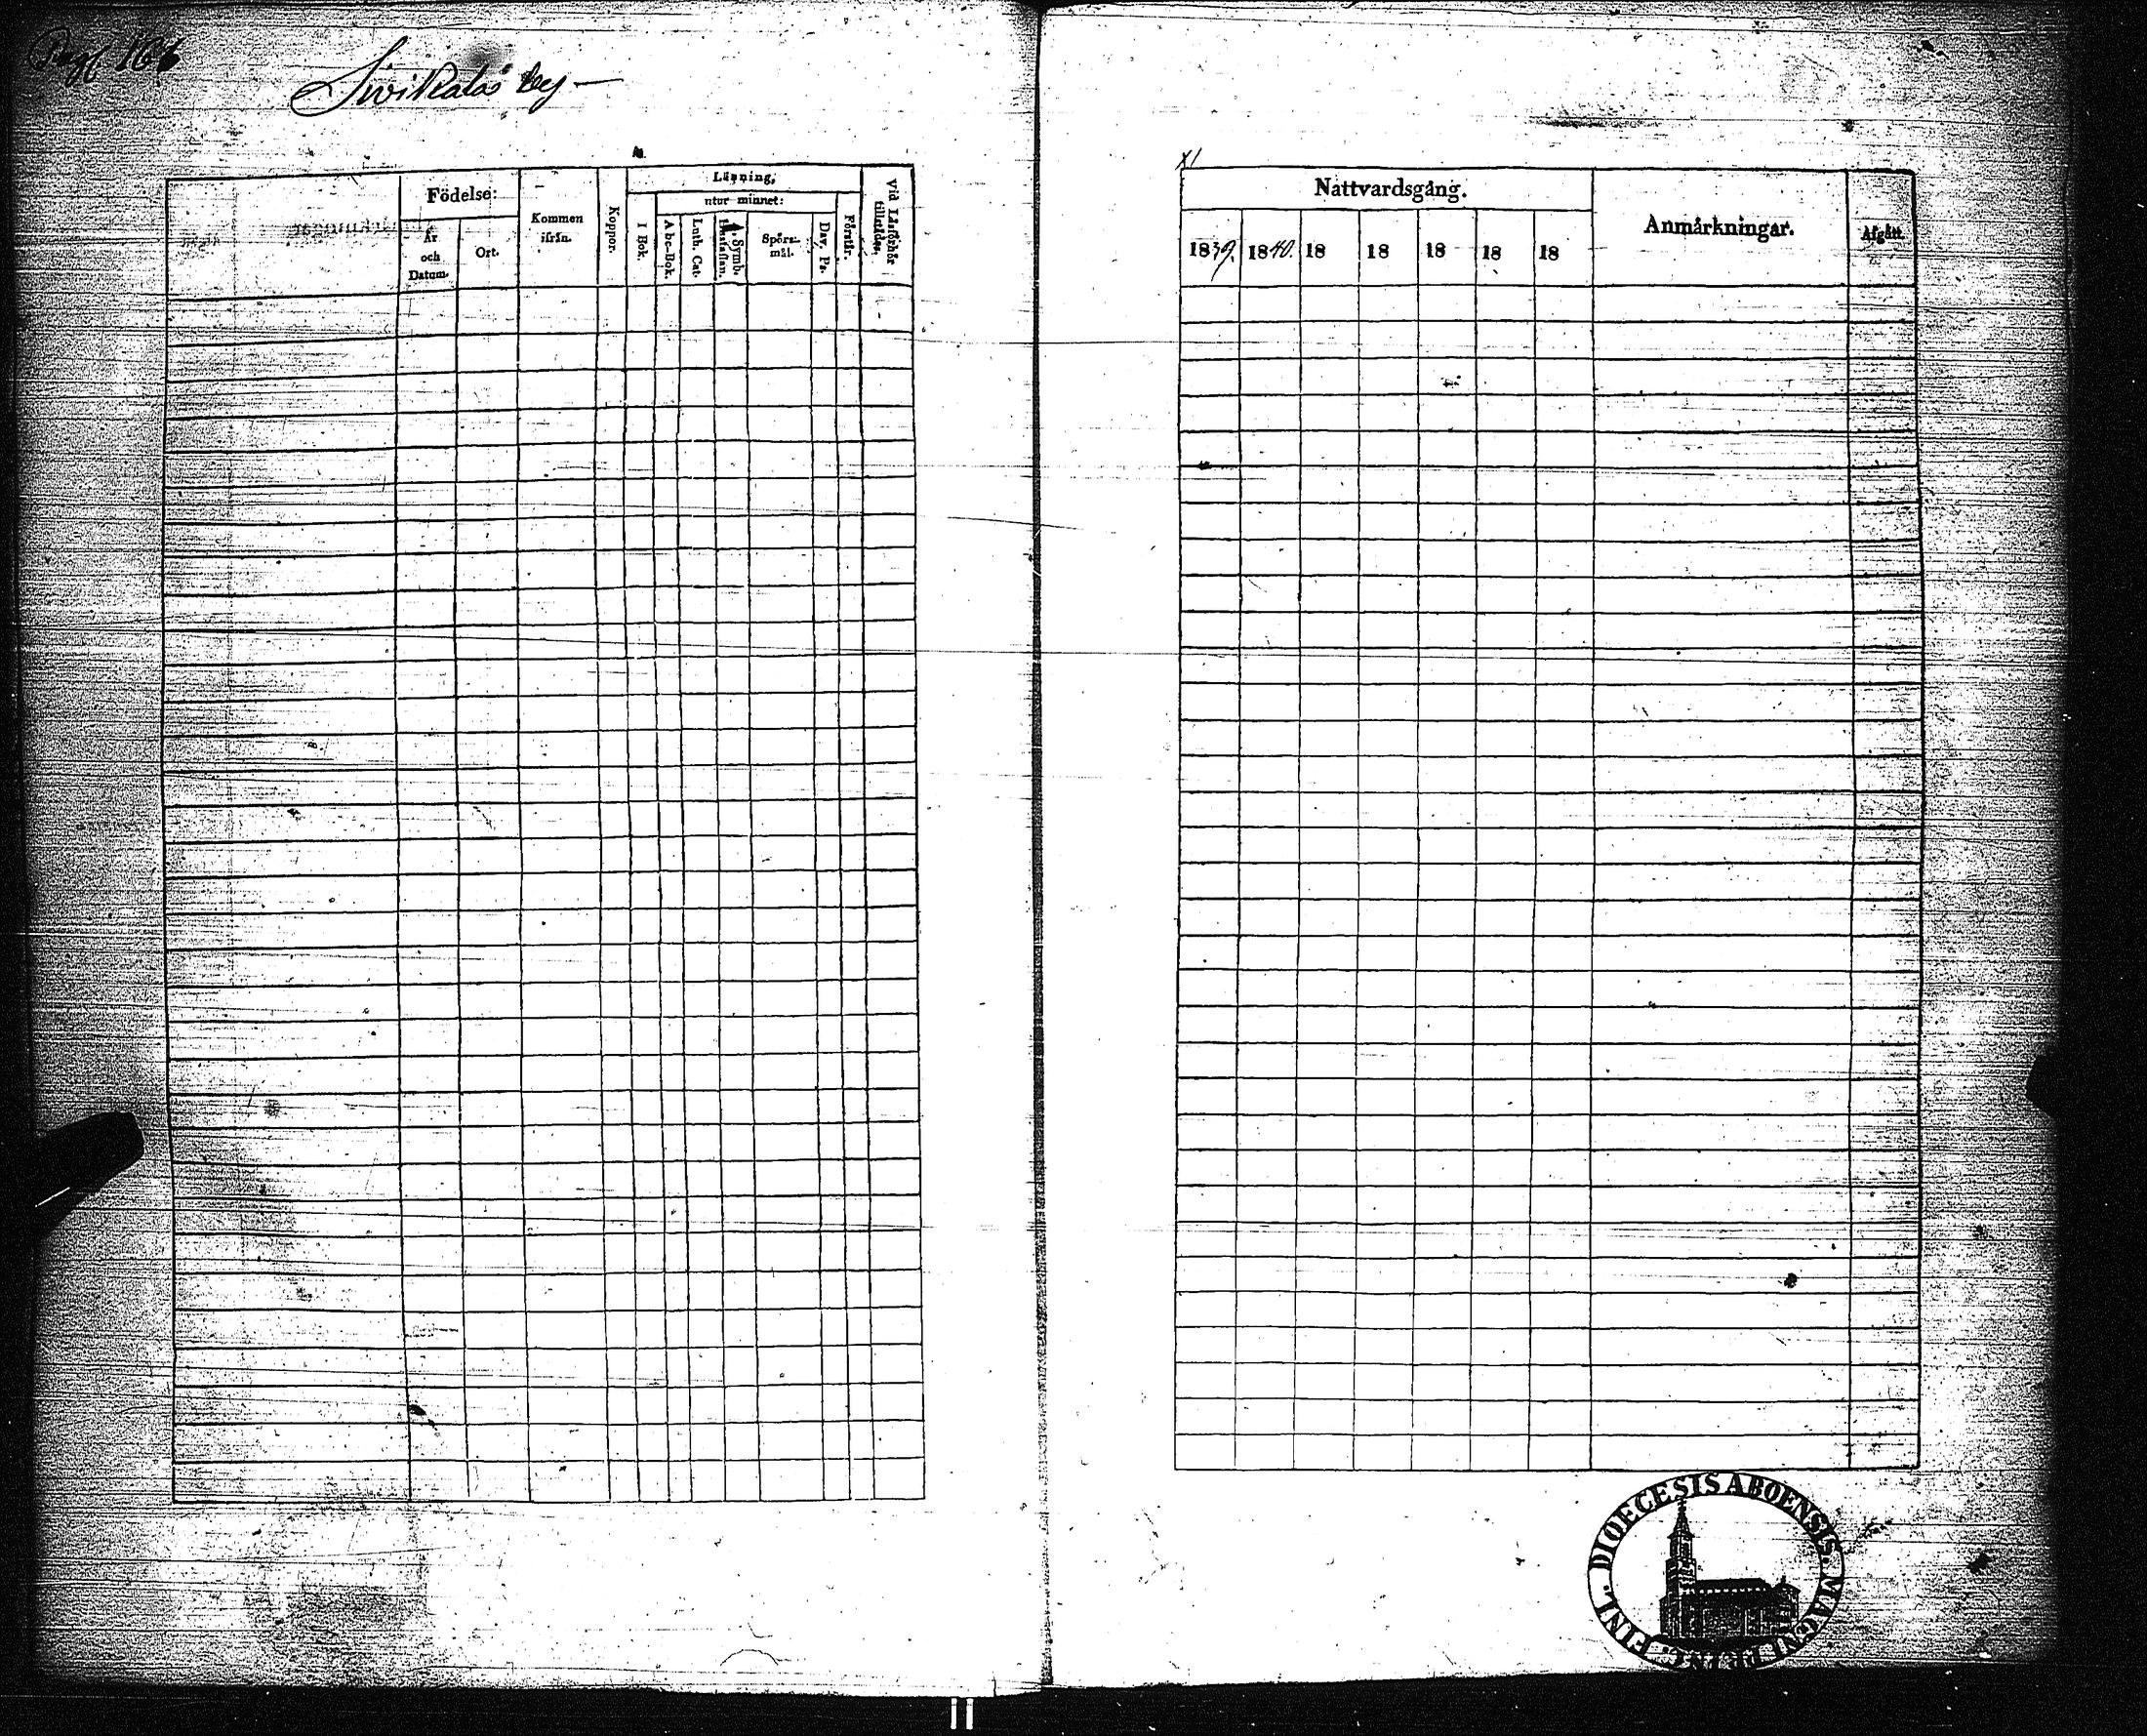 Pag. 166
Sivikala by
Födelse:
År och Datum.
Ort.
Kommen ifrån.
Koppor.
Läsning,
utur minnet:
I Bok.
Abc-Bok.
Luth. Cat.
Symb.
Spörsmål.
Dav. Ps.
Förstår.
Vid Läsförhör tillstädes.
XI
Nattvardsgång.
1839. 1840. 18 18 18 18 18
Anmärkningar.
Afgått.
FINL. DIOECESIS ABOENSIS. MAGNI PRINC.